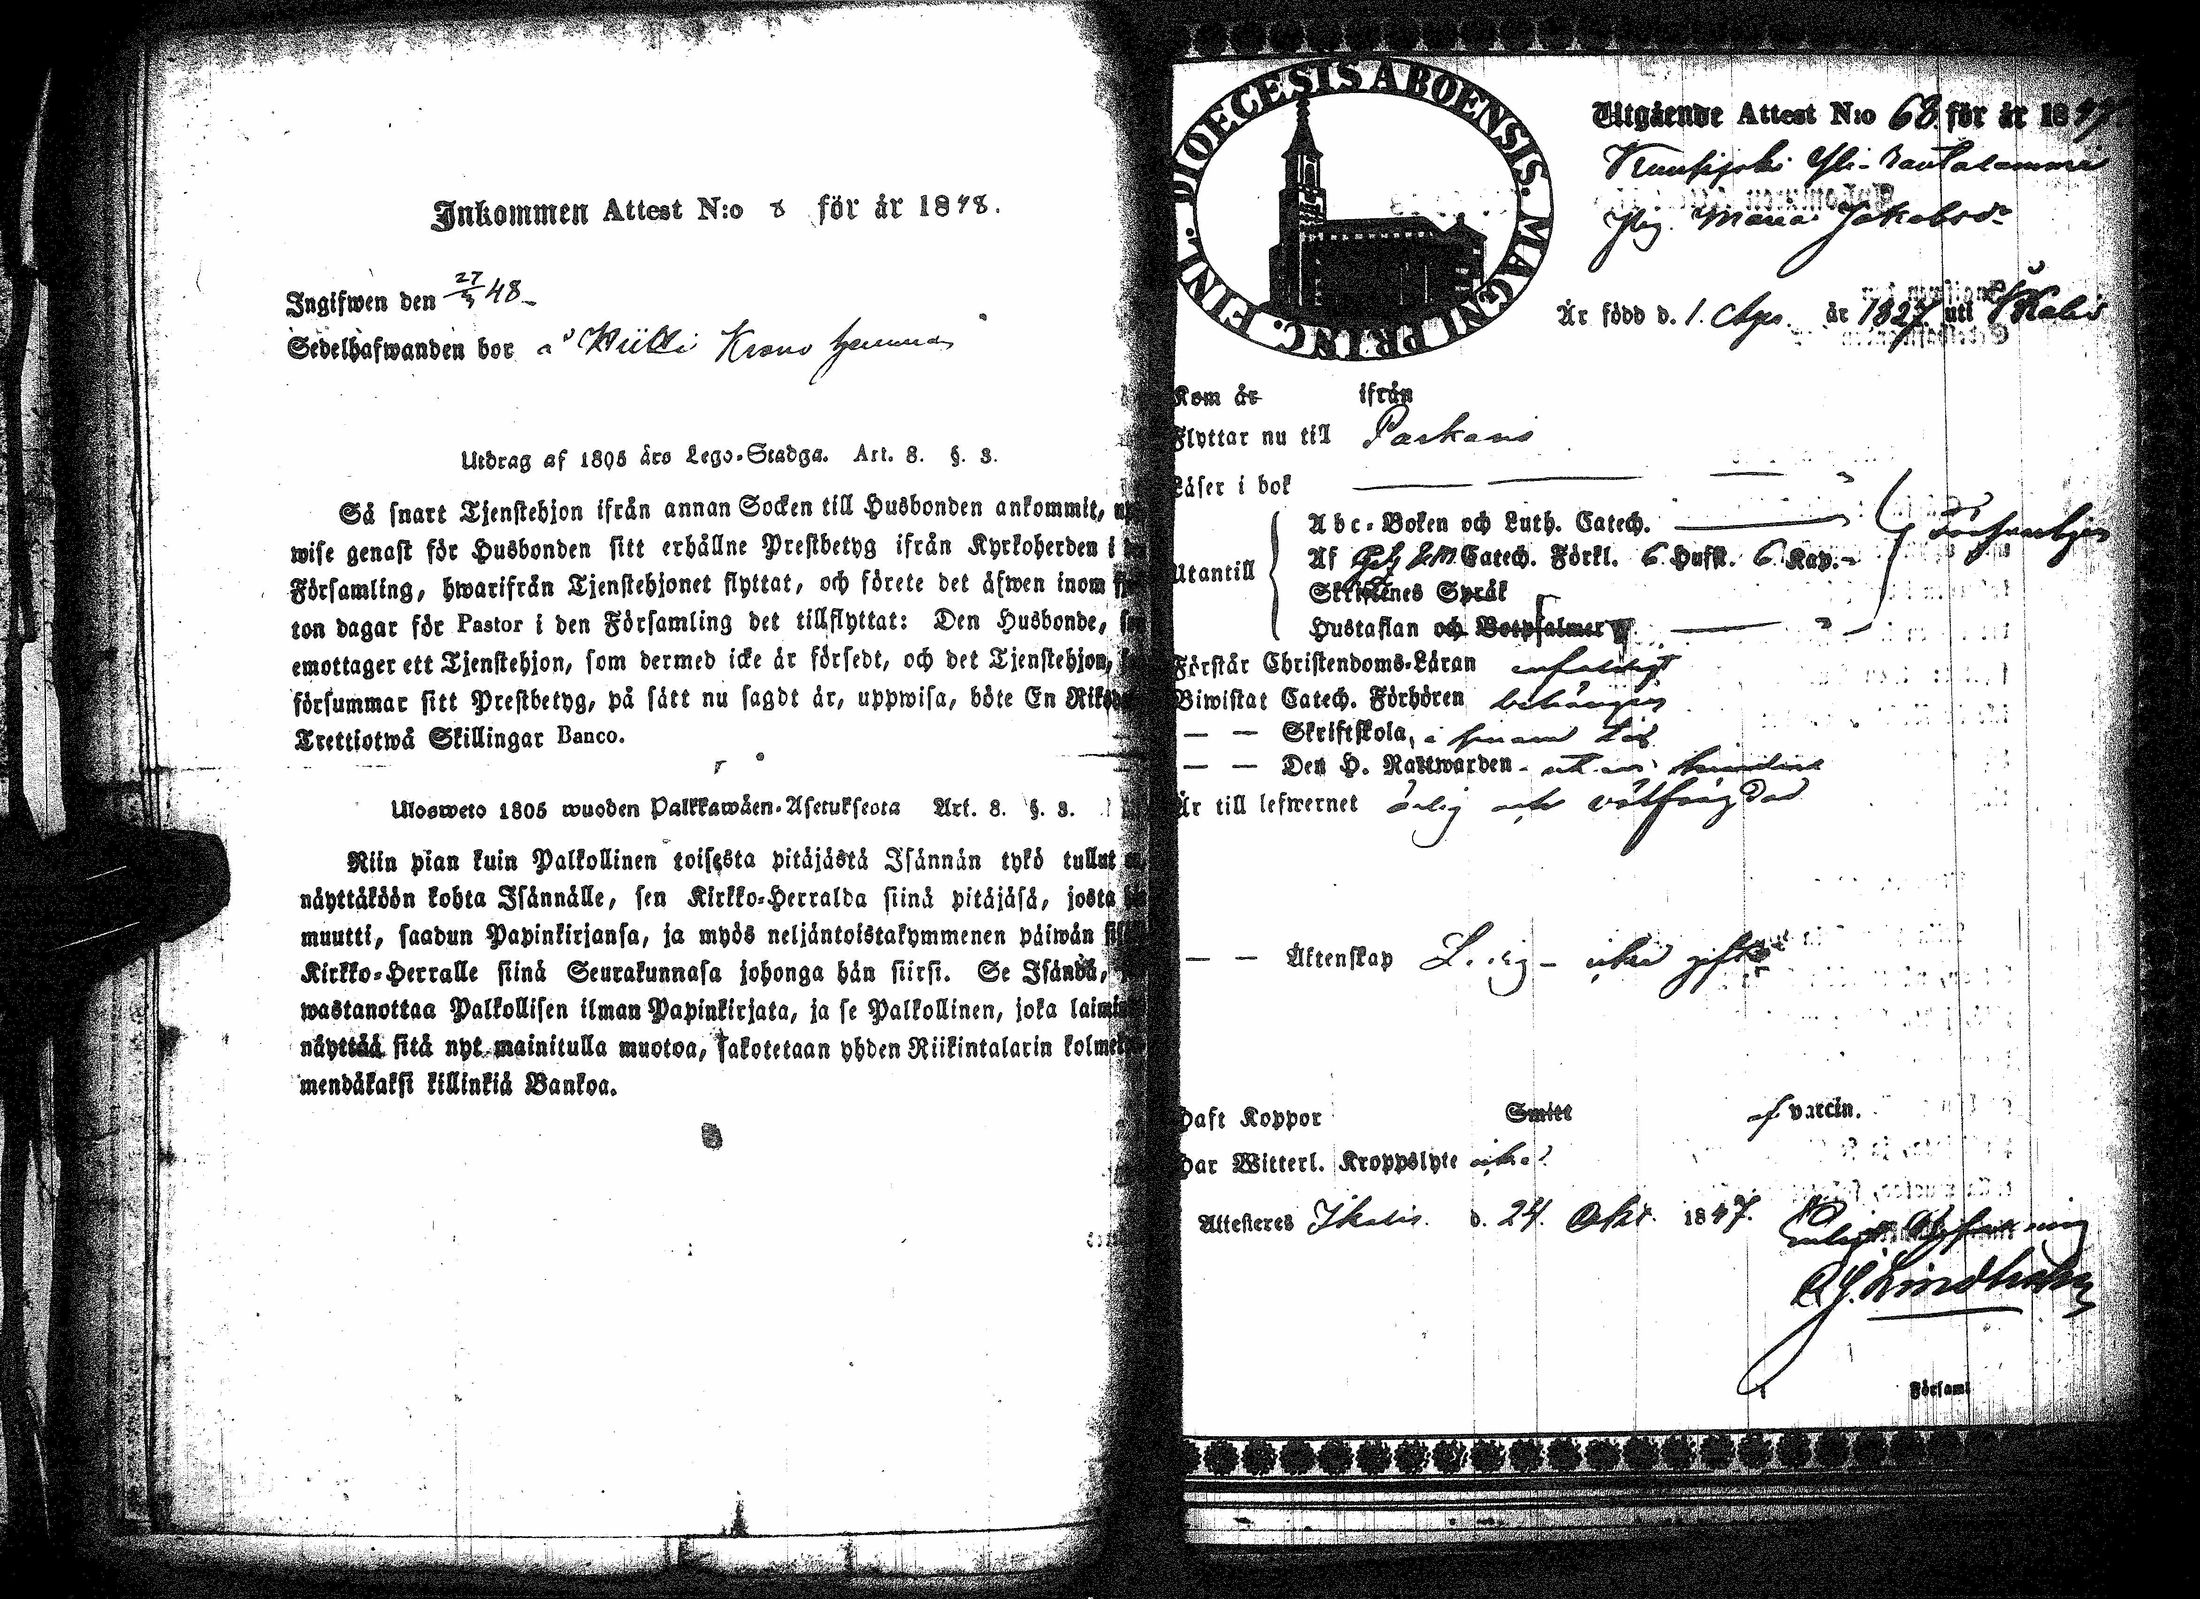 Inkommen Attest N:o 8 för år 1848.
Ingifwen den 27/3 48
Sedelhafwanden bor å Krono hemman
Utdrag af 1805 års Lego-Stadga. Art. 8. §. 3.
Så snart Tjenstehjon ifrån annan Socken till Husbonden ankommit,
wise genast för Husbonden sitt erhållne Prestbetyg ifrån Kyrkoherden i
Församling, hwarifrån Tjenstehjonet flyttat, och förete det äfwen inom
ton dagar för Pastor i den Församling det tillflyttat: Den Husbonde,
emottager ett Tjenstehjon, som dermed icke är försedt, och det Tjenstehjon,
försummar sitt Prestbetyg, på sätt nu sagdt är, uppwisa, böte En
Trettiotwå Skillingar Banco.
Ulosweto 1805 wuoden Palkkawäen-Asetuksesta Art. 8. §. 3.
Niin pian kuin Palkollinen toisesta pitäjästä Isännän tykö tullut
näyttäköön kohta Isännälle, sen Kirkko-Herralda siinä pitäjäsä, josta
muutti, saadun Papinkirjansa, ja myös neljäntoistakymmenen päiwän
Kirkko-Herralle siinä Seurakunnasa johonga hän siirsi. Se Isändä,
wastanottaa Palkollisen ilman Papinkirjata, ja se Palkollinen, joka
näyttää sitä nyt mainitulla muotoa, sakotetaan yhden Riikintalarin
mendäkaksi killinkiä Bankoa.
DIOECESIS ABOENSIS. MAGNI PRINC. FINL.
Utgående Attest N:o 68 för år 1847.
Maria Jakobsdr
Är född d. 1. år 1827 uti Ikalis
Kom år ifrån
Flyttar nu till Parkano
Läser i bok
Utantill
Abc-Boken och Luth. Catech.
Af Catech. Förkl. 6 Hufst. 6 Kap.
Skriftenes Språk
Hustaflan och Botpsalmer
Förstår Christendoms-Läran enfaldigt
Biwistat Catech. Förhören behörigen
— — Skriftskola,
— — Den H. Nattwarden
Är till lefwernet ärlig och
— — Äktenskap Ledig - icke gift
Haft Koppor Smitt af vaccin.
Har Witterl. Kroppslyte icke
Attesteres Ikalis d. 24. Okt. 1847.
Lindholm
Församl